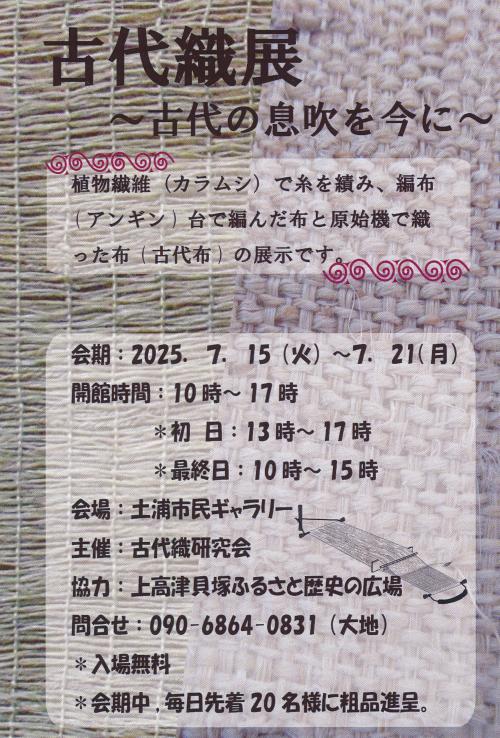 古代織展
～古代の息吹を今に～
植物繊維（カラムシ）で糸を績み、編布
(アンギン）台で編んだ布と原始機で織
った布（古代布）の展示です。
会期：2025. 7. 15（火）～7. 21(月)
開館時間：10時～17時
＊初 日：13時～17時
＊最終日：10時～15時
会場：土浦市民ギャラリー
主催：古代織研究会
協力：上高津貝塚ふるさと歴史の広場
問合せ：090-6864-0831（大地）
＊入場無料
＊会期中,毎日先着20名様に粗品進呈。